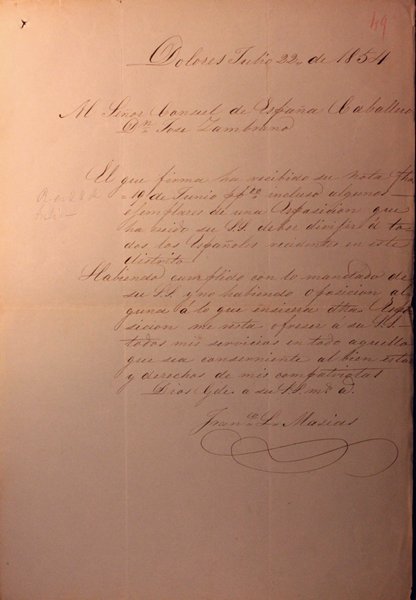 49
Dolores Julio 22 de 1854
Al Señor Consul de España Caballero
Dn. Jose Zambrano
El que firma ha recibido su nota fha
10 de Junio ppdo incluso algunos
ejemplares de una Exposicion que
ha creido su S.S. deber dirijir á to
dos los Españoles recidentes en este
distrito
Habiendo cumplido con lo mandado de
su S.S. y no habiendo oposicion al
guna á lo que insierta dha Espo
sicion me resta ofrecer a su S.S.
todos mis servicios en todo aquello
que sea conserniente al bien estar
y derechos de mis compatriotas
Dios Gde a su S.S. ms. a.
Franco. L. Masias